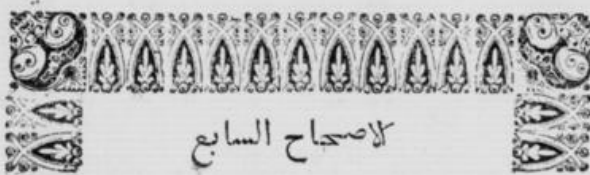 الاصحاح السابع